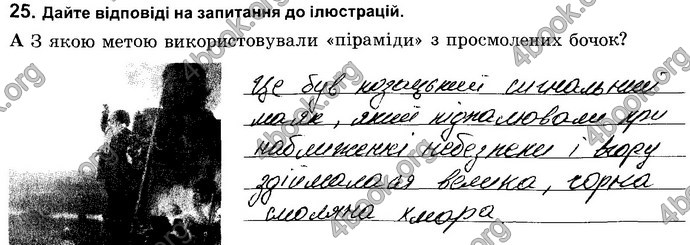 25. Дайте відповіді на запитання до ілюстрацій.
А З якою метою використовували «піраміди» з просмолених бочок?
Це був козацький сигнальний
маяк, який підпалювали при
наближенні небезпеки і вгору
здіймалася велика, чорна
смоляна хмара
4book.org
4book.org
4book.org
4book.org
4book.org